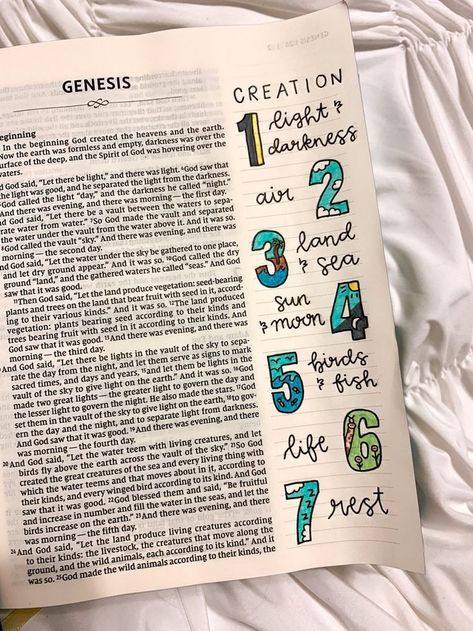 GENESIS
eginning
In the beginning God created the heavens and the earth.
Now the earth was formless and empty, darkness was over the
urface of the deep, and the Spirit of God was hovering over the
waters.
nd God said, "Let there be light," and there was light. ⁴God saw that
the light was good, and he separated the light from the darkness.
God called the light "day," and the darkness he called "night."
And there was evening, and there was morning—the first day.
nd God said, "Let there be a vault between the waters to sepa-
rate water from water." ⁷So God made the vault and separated
the water under the vault from the water above it. And it was so.
God called the vault "sky." And there was evening, and there was
morning—the second day.
nd God said, "Let the water under the sky be gathered to one place,
and let dry ground appear." And it was so. ¹⁰God called the dry
ground "land," and the gathered waters he called "seas." And God
saw that it was good.
¹¹Then God said, "Let the land produce vegetation: seed-bearing
plants and trees on the land that bear fruit with seed in it, accord-
ing to their various kinds." And it was so. ¹²The land produced
vegetation: plants bearing seed according to their kinds and
trees bearing fruit with seed in it according to their kinds. And
God saw that it was good. ¹³And there was evening, and there was
morning—the third day.
nd God said, "Let there be lights in the vault of the sky to sepa-
rate the day from the night, and let them serve as signs to mark
sacred times, and days and years, ¹⁵and let them be lights in the
vault of the sky to give light on the earth." And it was so. ¹⁶God
made two great lights—the greater light to govern the day and
the lesser light to govern the night. He also made the stars. ¹⁷God
set them in the vault of the sky to give light on the earth, ¹⁸to gov-
ern the day and the night, and to separate light from darkness.
And God saw that it was good. ¹⁹And there was evening, and there
was morning—the fourth day.
²⁰And God said, "Let the water teem with living creatures, and let
birds fly above the earth across the vault of the sky." ²¹So God
created the great creatures of the sea and every living thing with
which the water teems and that moves about in it, according to
their kinds, and every winged bird according to its kind. And God
saw that it was good. ²²God blessed them and said, "Be fruitful
and increase in number and fill the water in the seas, and let the
birds increase on the earth." ²³And there was evening, and there
was morning—the fifth day.
²⁴And God said, "Let the land produce living creatures according
to their kinds: the livestock, the creatures that move along the
ground, and the wild animals, each according to its kind." And it
was so. ²⁵God made the wild animals according to their kinds, the
CREATION
1 light &
darkness
air 2
3 land
& sea
sun
& moon 4
5 birds
& fish
life 6
7 rest